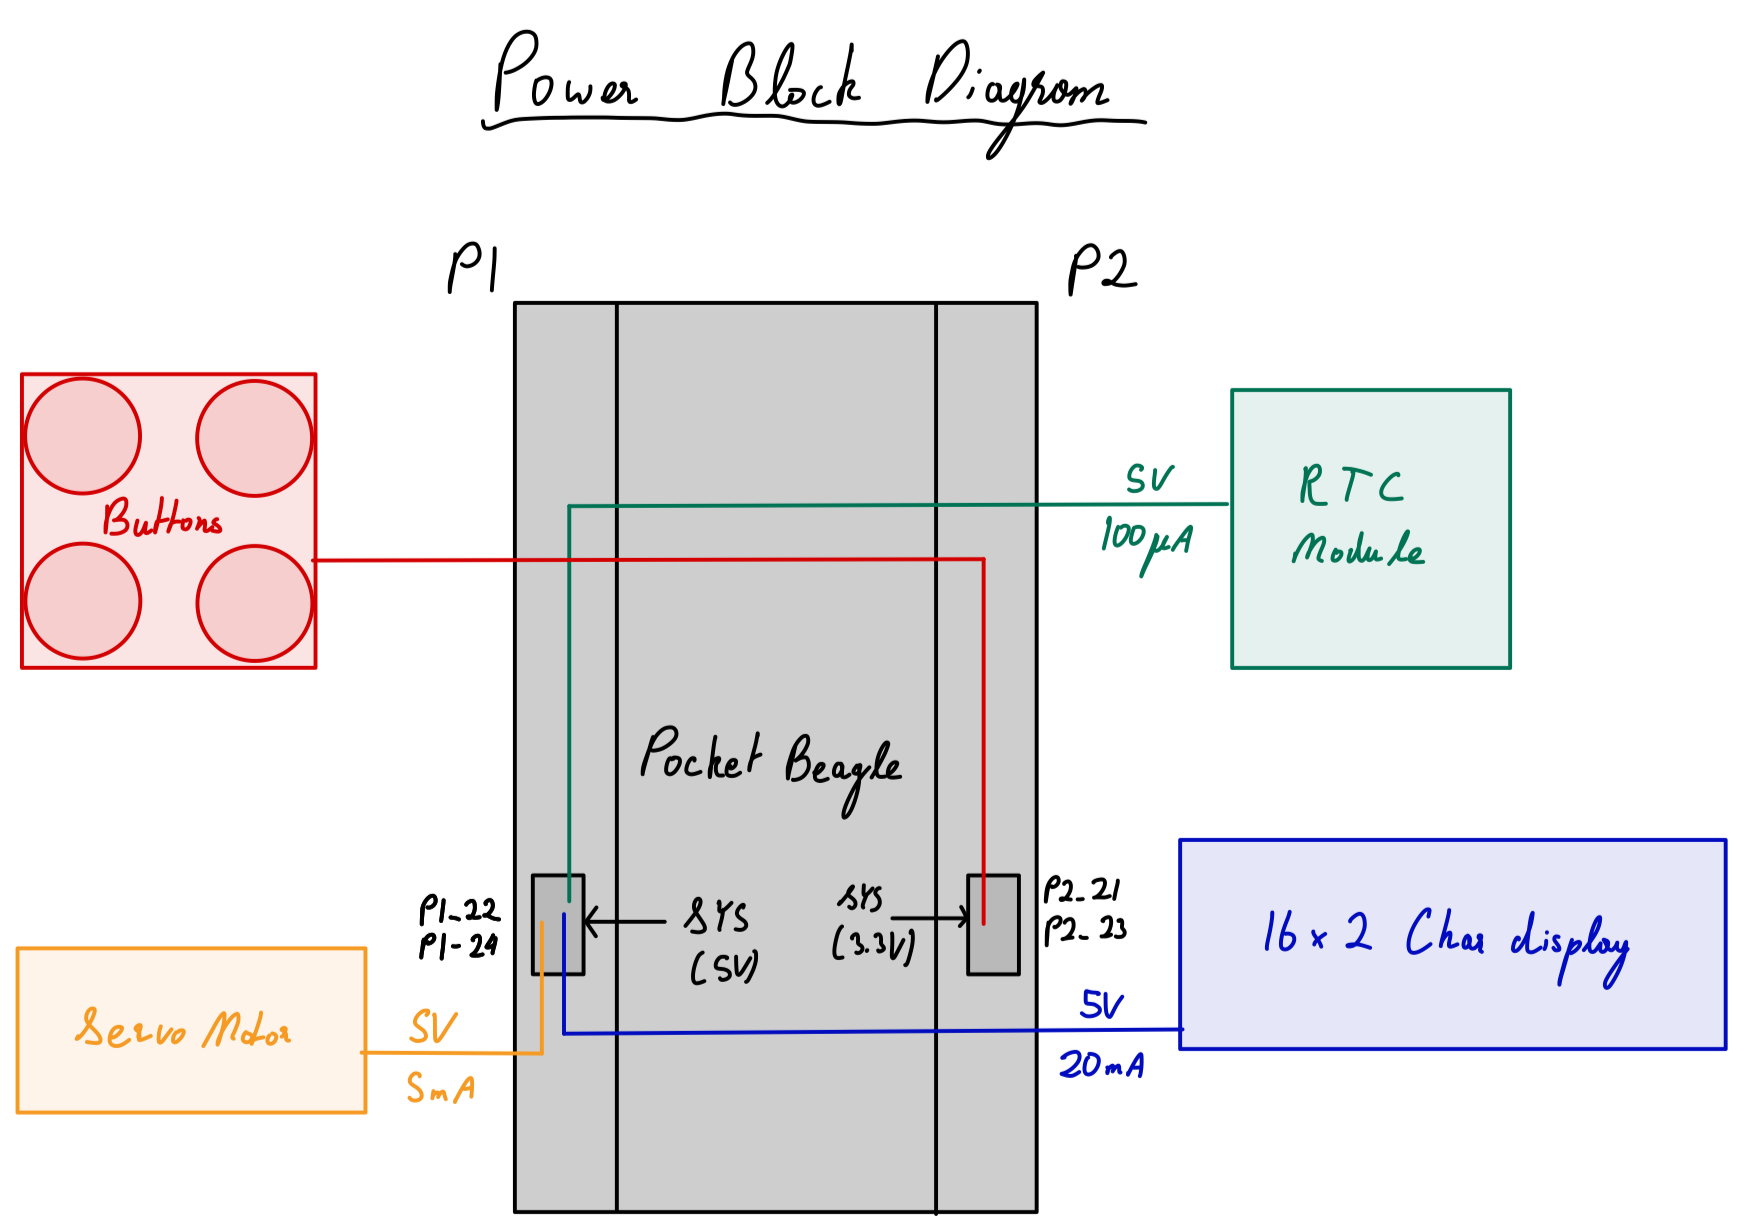 Power Block Diagram
P1
P2
Buttons
5V
100μA
RTC
Module
Pocket Beagle
P1_22
P1-24
SYS
(5V)
SYS
(3.3V)
P2_21
P2_23
16 x 2 Char display
Servo Motor
5V
5mA
5V
20mA